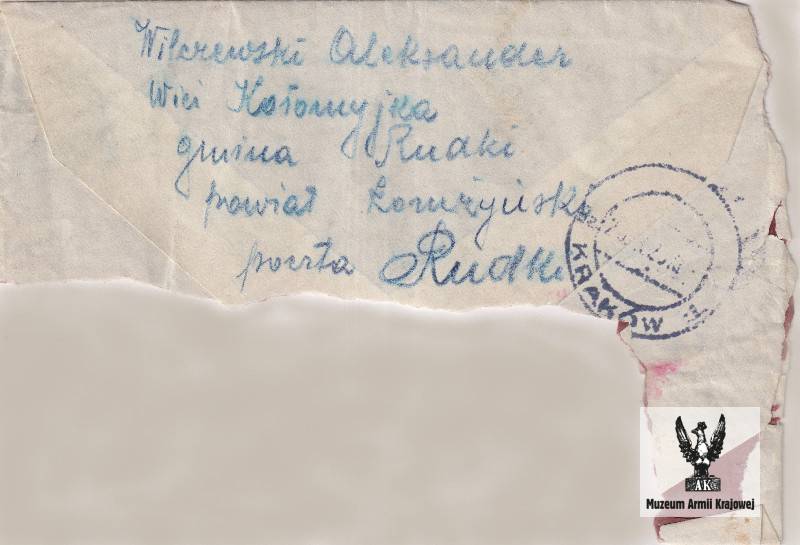 Wilczewski Aleksander
Wieś Kołomyjka
gmina Rudki
powiat Łomżyński
poczta Rudki
KRAKÓW
AK
Muzeum Armii Krajowej